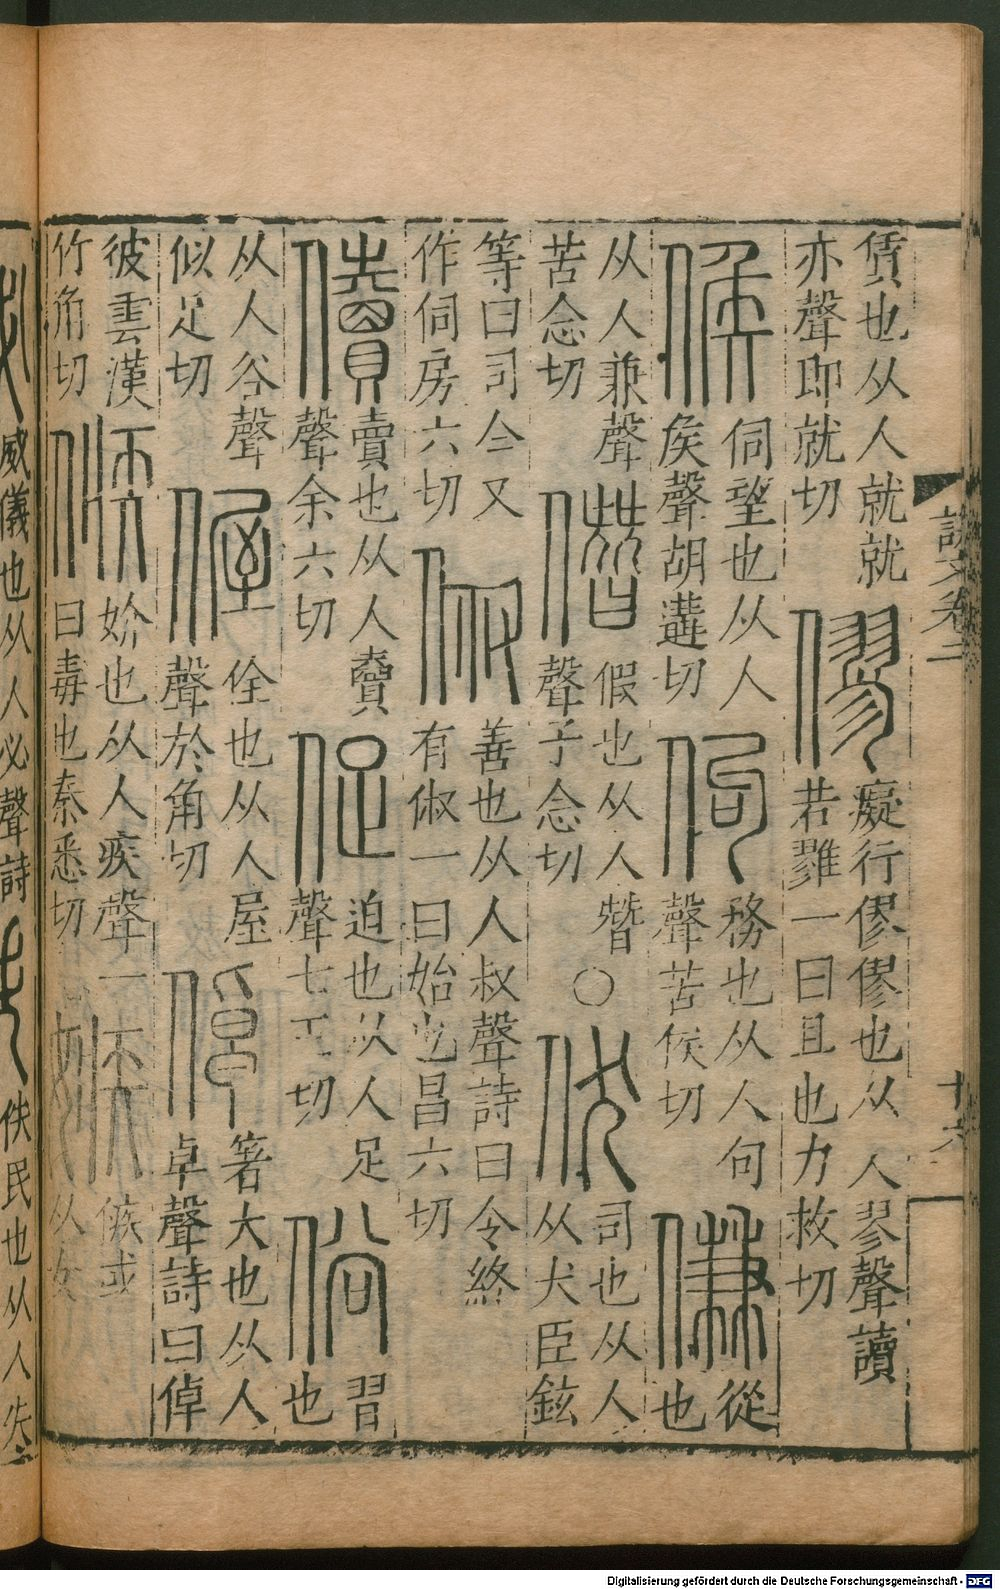 說文卷二
十六
賃也从人就就
亦聲即就切
僇
癡行僇僇也从人翏聲讀
若雡一曰且也力救切
候
伺望也从人
矦聲胡遘切
佝
務也从人句
聲苦候切
傔
從
也
从人兼聲
苦念切
僭
假也从人朁
聲子念切
○
伏
司也从人
从犬臣鉉
等曰司今又
作伺房六切
俶
善也从人叔聲詩曰令終
有俶一曰始也昌六切
儥
賣也从人𧶠
聲余六切
促
迫也从人足
聲七玉切
俗
習
也
从人谷聲
似足切
偓
佺也从人屋
聲於角切
倬
箸大也从人
卓聲詩曰倬
彼雲漢
竹角切
㑵
妎也从人疾聲一
曰毒也秦悉切
嫉
㑵或
从女
威儀也从人必聲詩
佚民也从人失
Digitalisierung gefördert durch die Deutsche Forschungsgemeinschaft - DFG